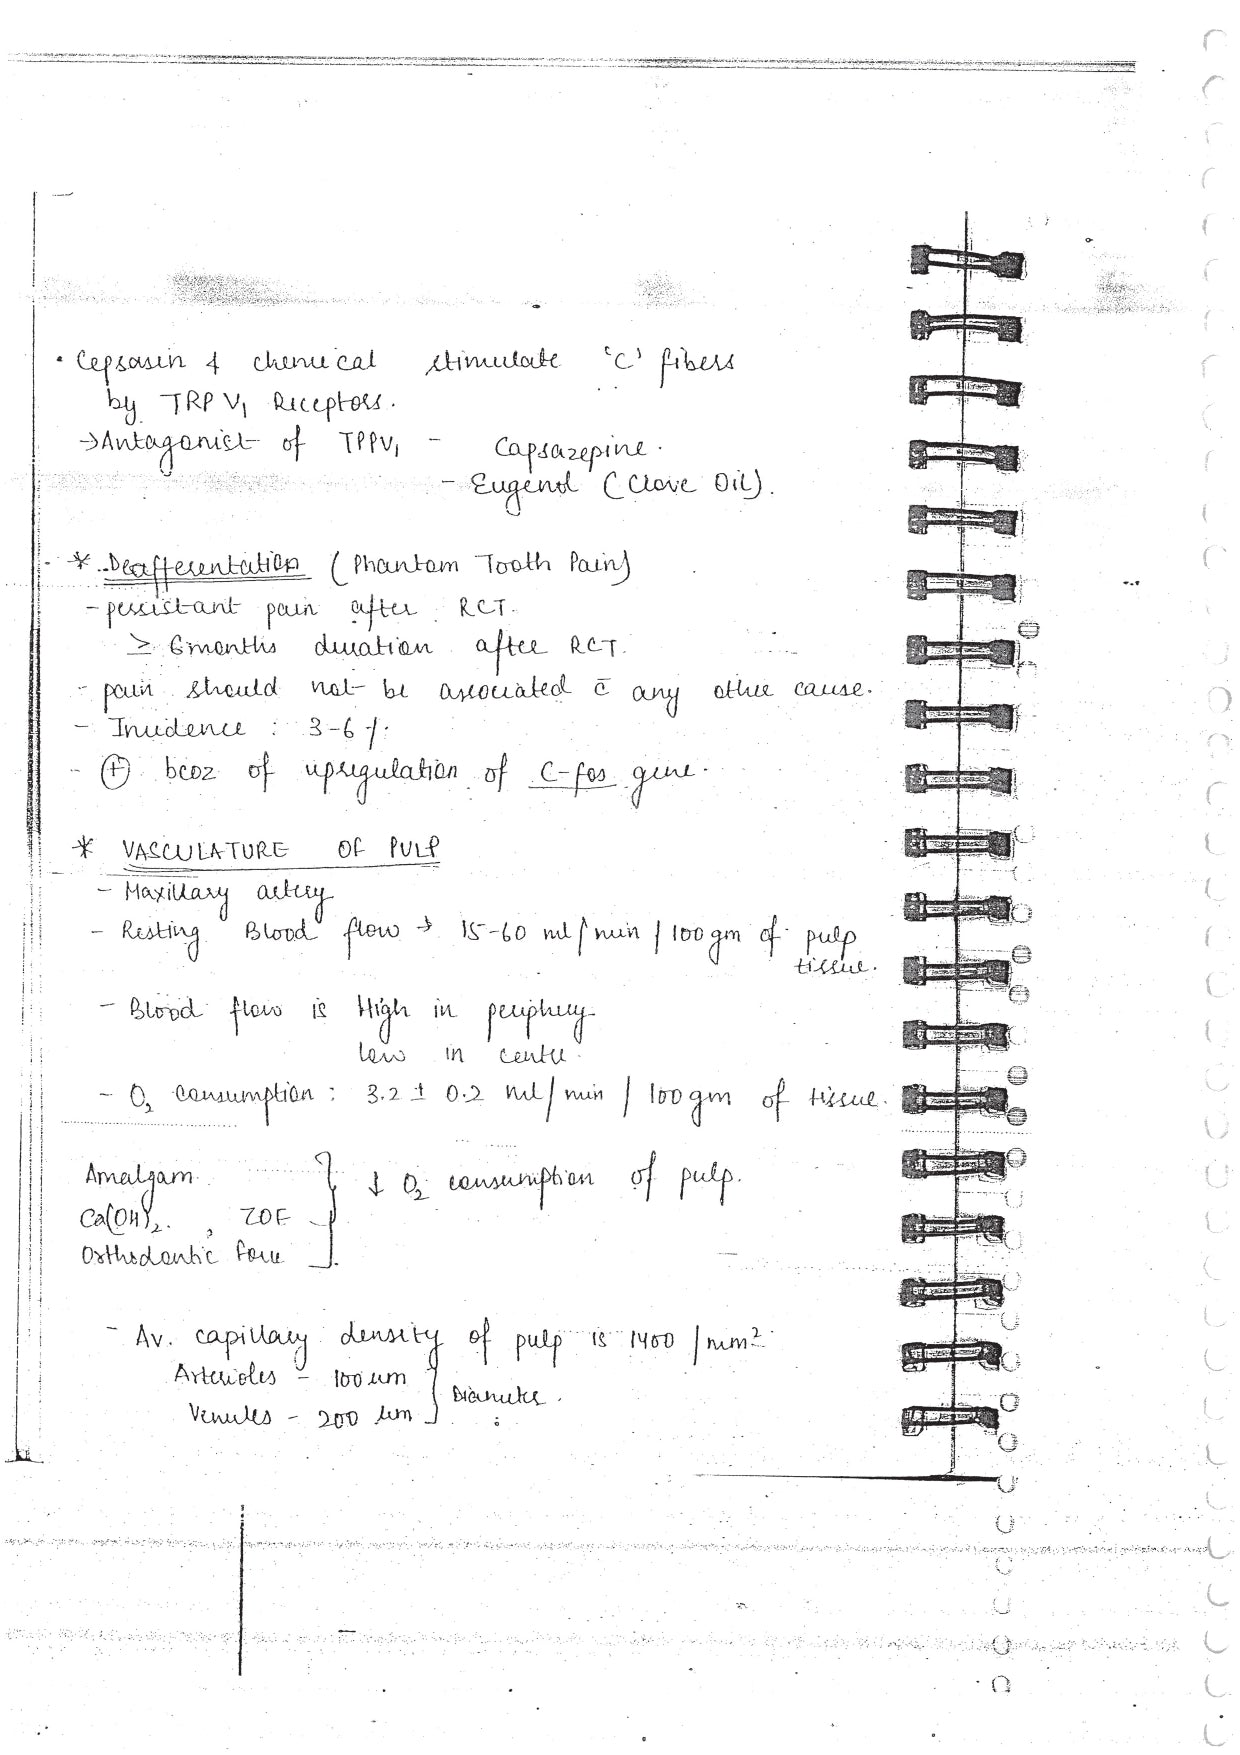 • Cepsasin & chemical stimulate 'C' fibers
by TRPV₁ Receptors.
→ Antagonist of TPPV₁ - Capsazepine.
- Eugenol (Clove Oil).
* Deafferentation (Phantom Tooth Pain)
- persistant pain after RCT.
≥ 6months duration after RCT.
- pain should not be associated c̄ any other cause.
- Incidence : 3-6 %.
- ⊕ bcoz of upregulation of C-fos gene.
* VASCULATURE OF PULP
- Maxillary artery
- Resting Blood flow → 15-60 ml/min/100gm of pulp
tissue.
- Blood flow is High in periphery
low in centre.
- O₂ consumption : 3.2 ± 0.2 ml/min/100gm of tissue.
Amalgam } ↓ O₂ consumption of pulp.
Ca(OH)₂. , ZOE
Orthodontic force
- Av. capillary density of pulp is 1400/mm²
Arterioles - 100 um } Diameter.
Venules - 200 um